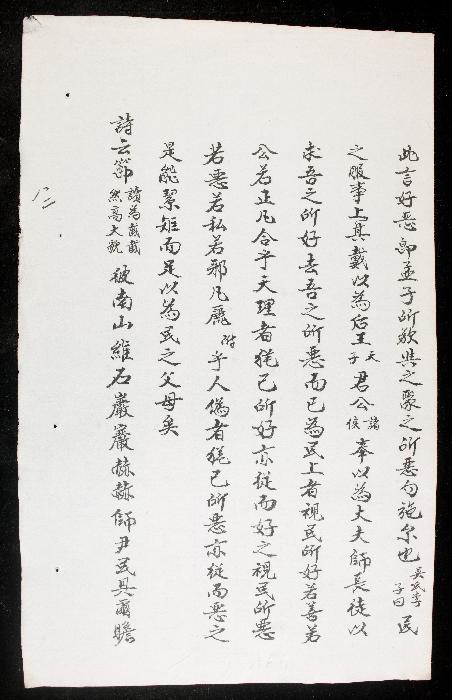 此言好惡即孟子所欲與之聚之所惡勿施尔也吳氏季子曰民
之服事上具戴以為后王天子君公諸侯奉以為大夫師長徒以
求吾之所好去吾之所惡而已為民上者視民所好若善若
公若正凡合乎天理者犹己所好亦從而好之視民所惡
若惡若私若邪凡麗附乎人偽者犹己所惡亦從而惡之
是能絜矩而足以為民之父母矣
詩云節讀為截截然高大貌彼南山維石巖巖赫赫師尹民具爾瞻